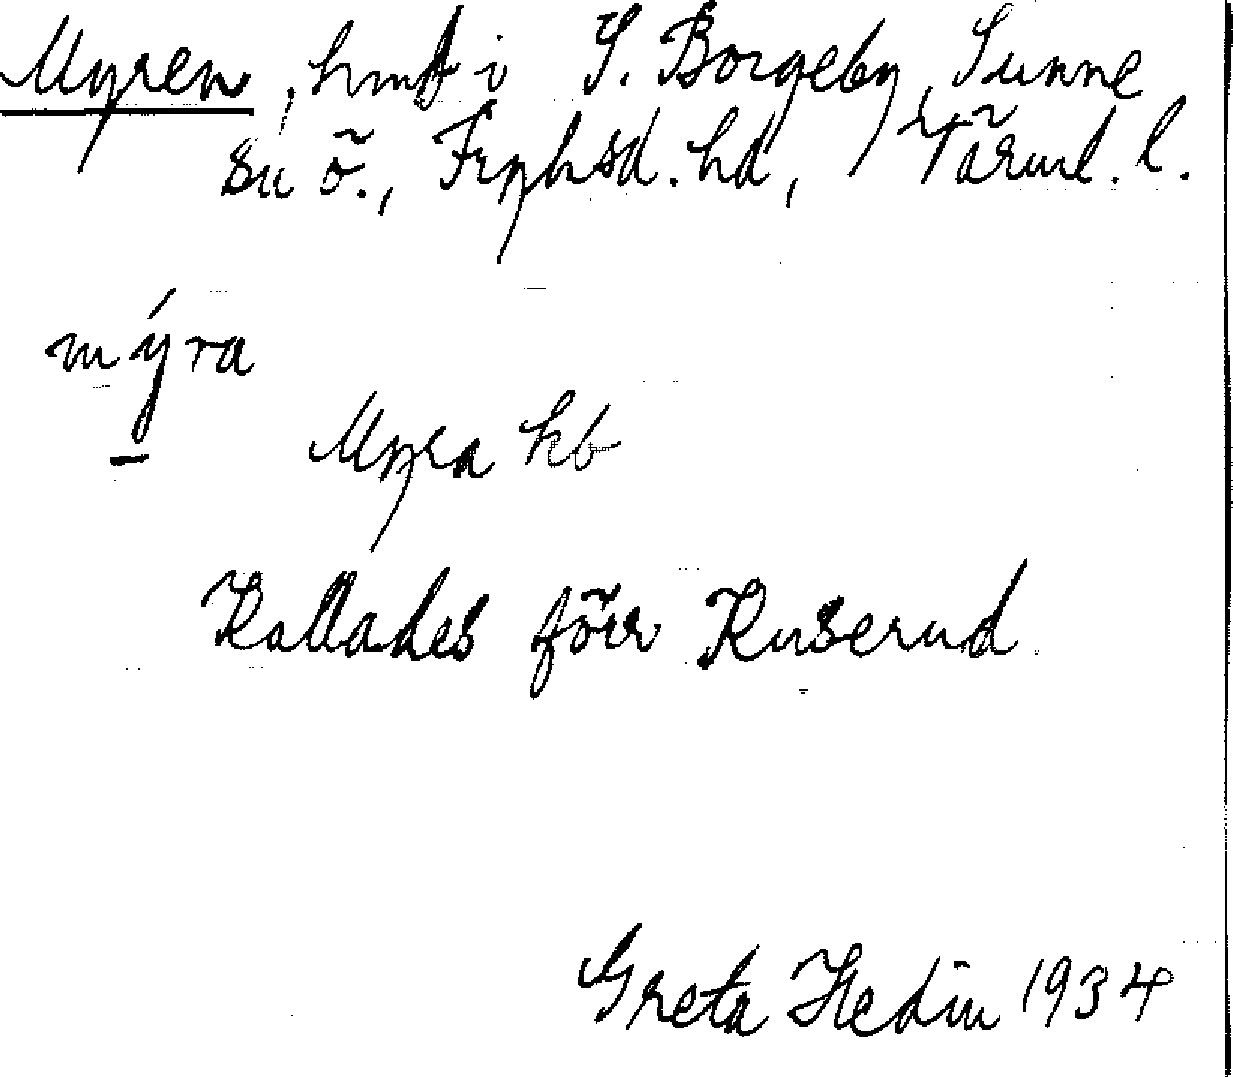 Myren, hmd i S. Borgeby, Sunne
su ö., Fryksd. hd, Värml. l.
mýra
Myra kb
Kallades förr Kuserud
Greta Hedin 1934